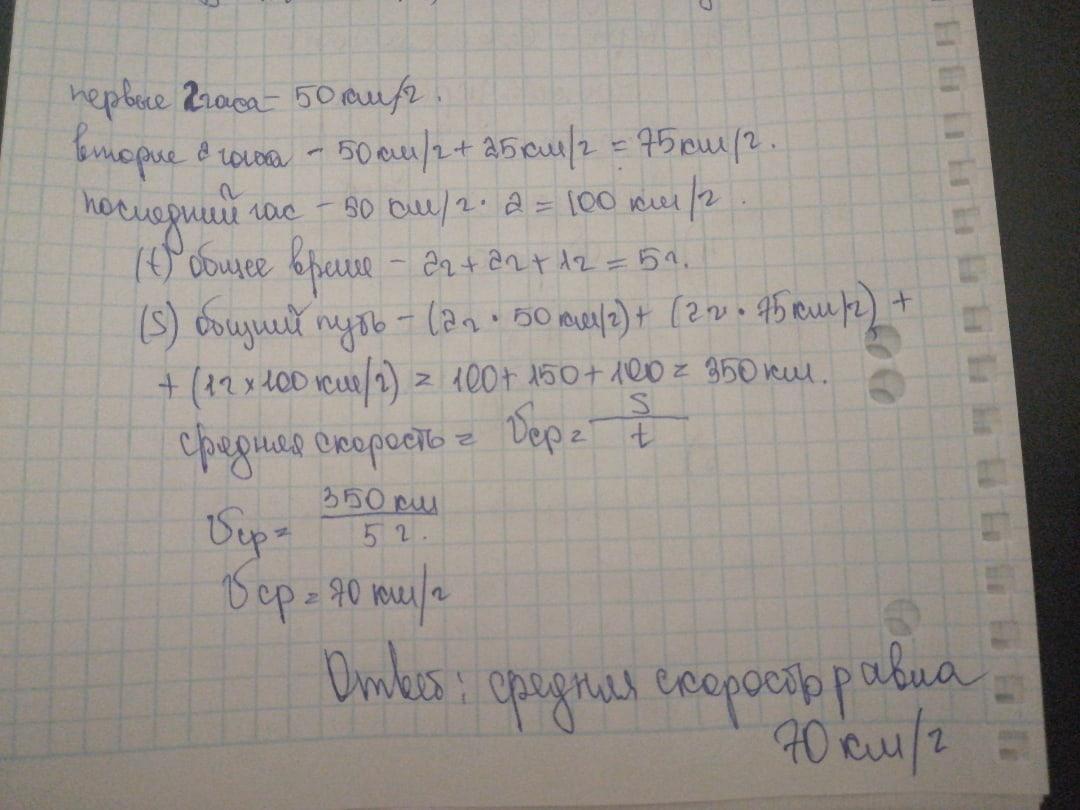 первые 2 часа - 50 км/ч.
вторые 2 часа - 50 км/ч + 25 км/ч = 75 км/ч.
последний час - 50 км/ч · 2 = 100 км/ч.
(t) общее время - 2ч + 2ч + 1ч = 5ч.
(S) общий путь - (2ч · 50 км/ч) + (2ч · 75 км/ч) +
+ (1ч × 100 км/ч) = 100 + 150 + 100 = 350 км.
средняя скорость = Vср = S/t
Vср = 350 км / 5 ч.
Vср = 70 км/ч
Ответ: средняя скорость равна
70 км/ч